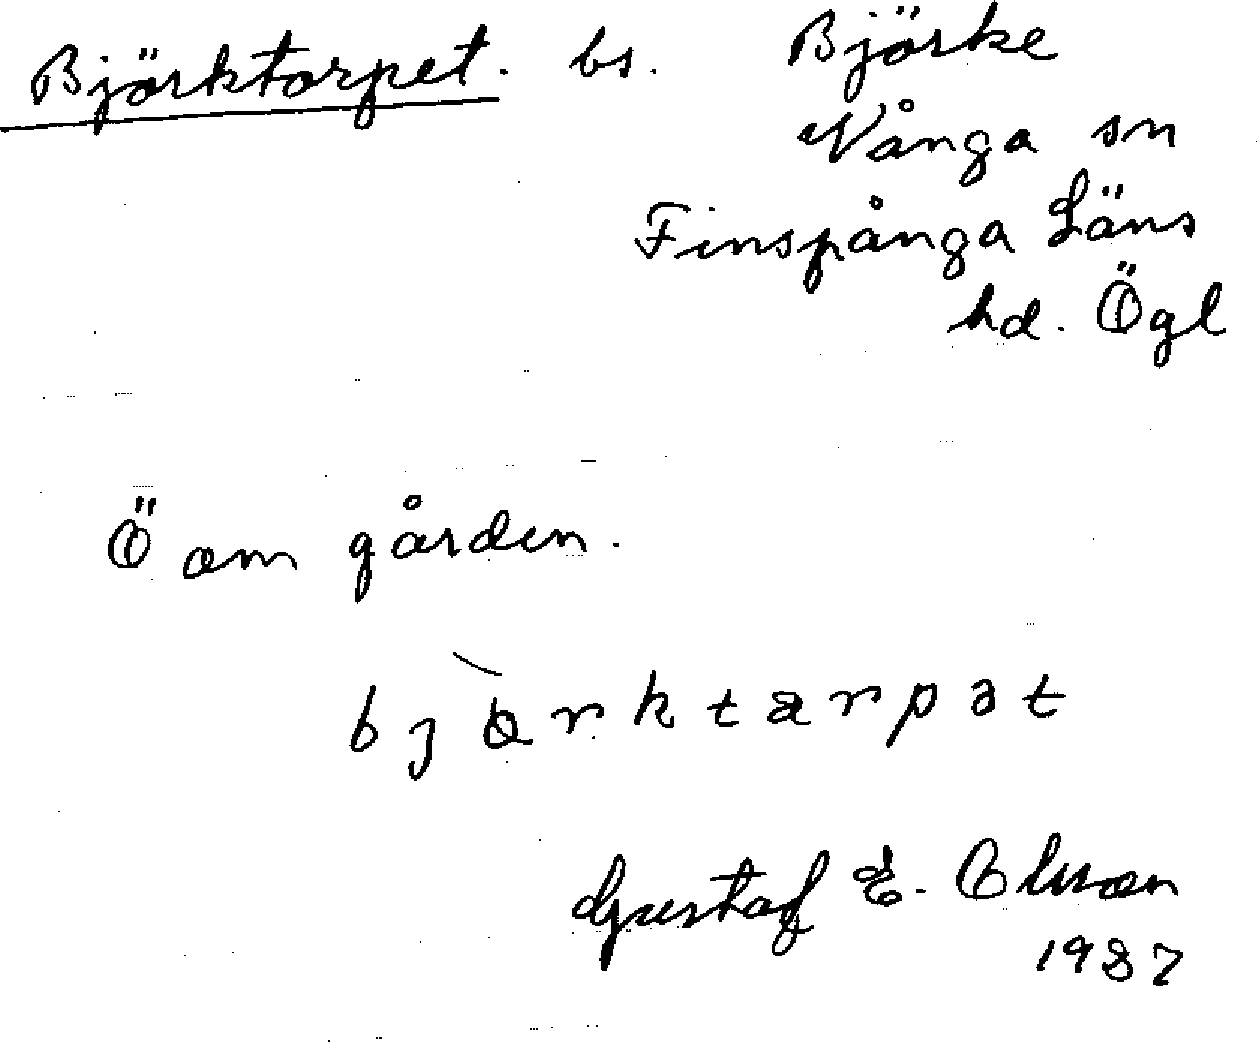 Björktorpet. bs. Björke
Vånga sn
Finspånga Läns
hd. Ögl
Ö om gården.
bjòrktarpət
Gustaf E. Olsson
1987